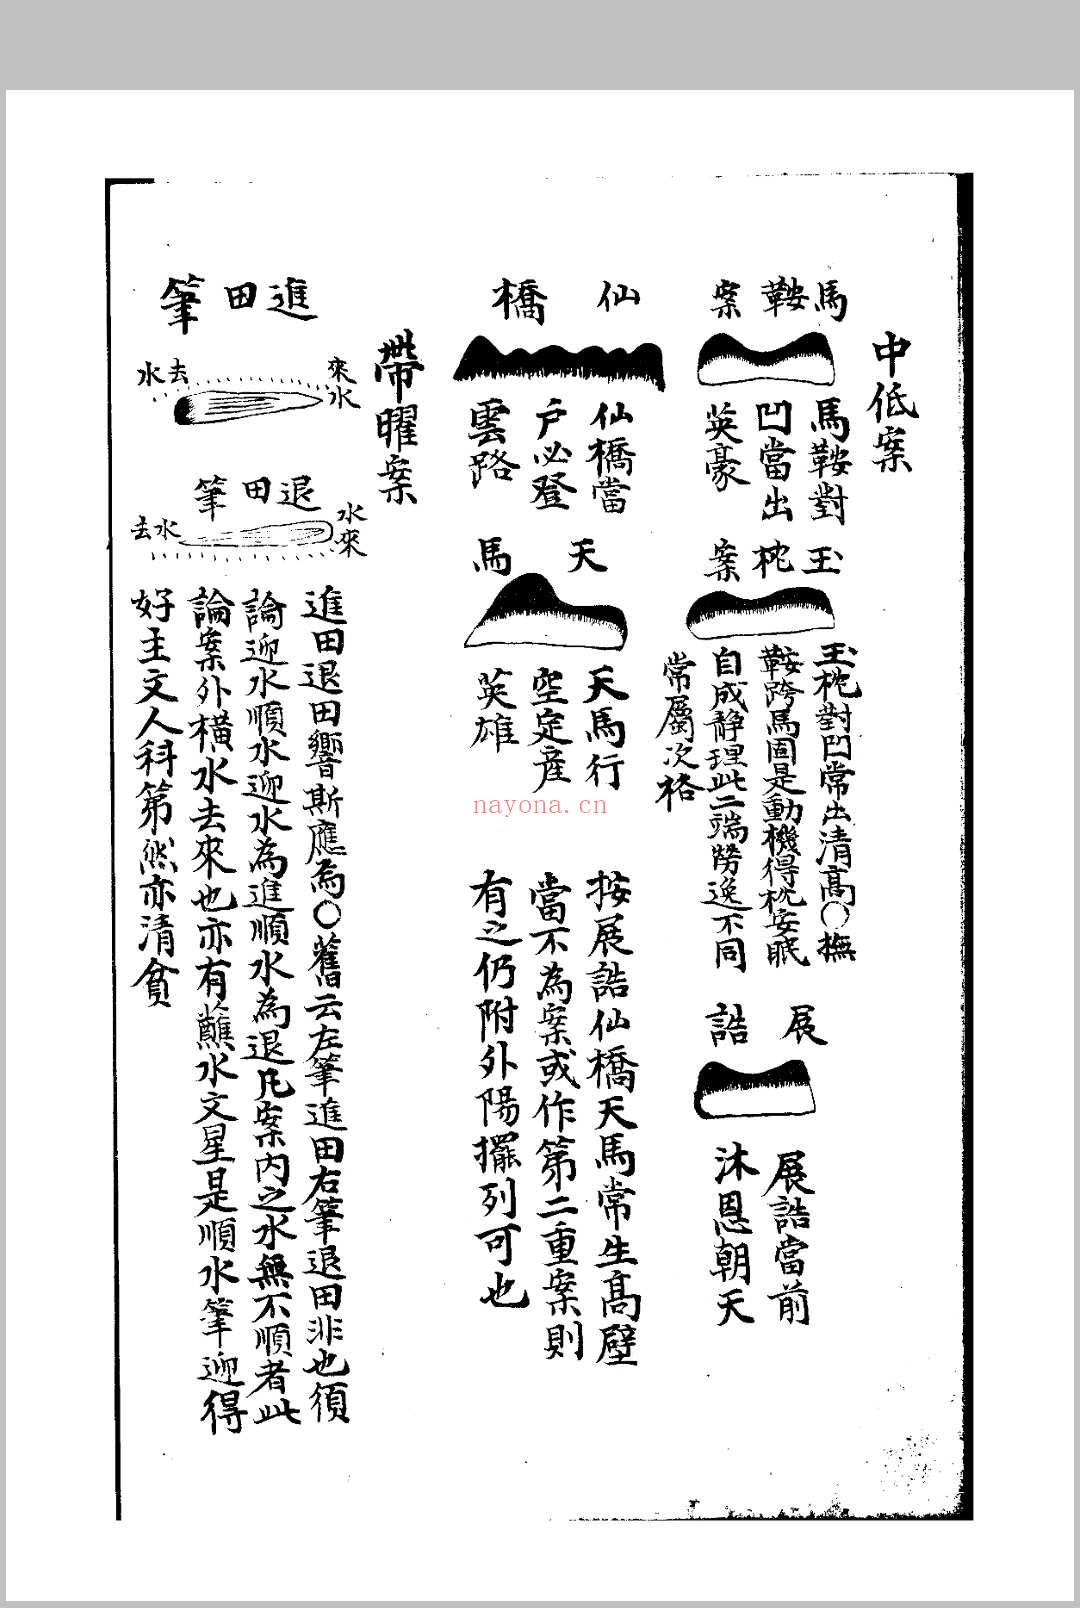 中低案
馬鞍案
馬鞍對
凹當出
英豪
玉枕案
玉枕對凹常出清高〇撫
鞍跨馬固是動機得枕安眠
自成静理此二端勞逸不同
常屬次格
展誥
展誥當前
沐恩朝天
仙橋
仙橋當
户必登
雲路
天馬
天馬行
空定産
英雄
按展誥仙橋天馬常生高壁
當不為案或作第二重案則
有之仍附外陽擺列可也
帶曜案
進田筆
來水
去水
退田筆
水來
水去
進田退田響斯應為〇舊云左筆進田右筆退田非也須
論迎水順水迎水為進順水為退凡案内之水無不順者此
論案外橫水去來也亦有蘸水文星是順水筆迎得
好主文人科第然亦清貧
nayona.cn